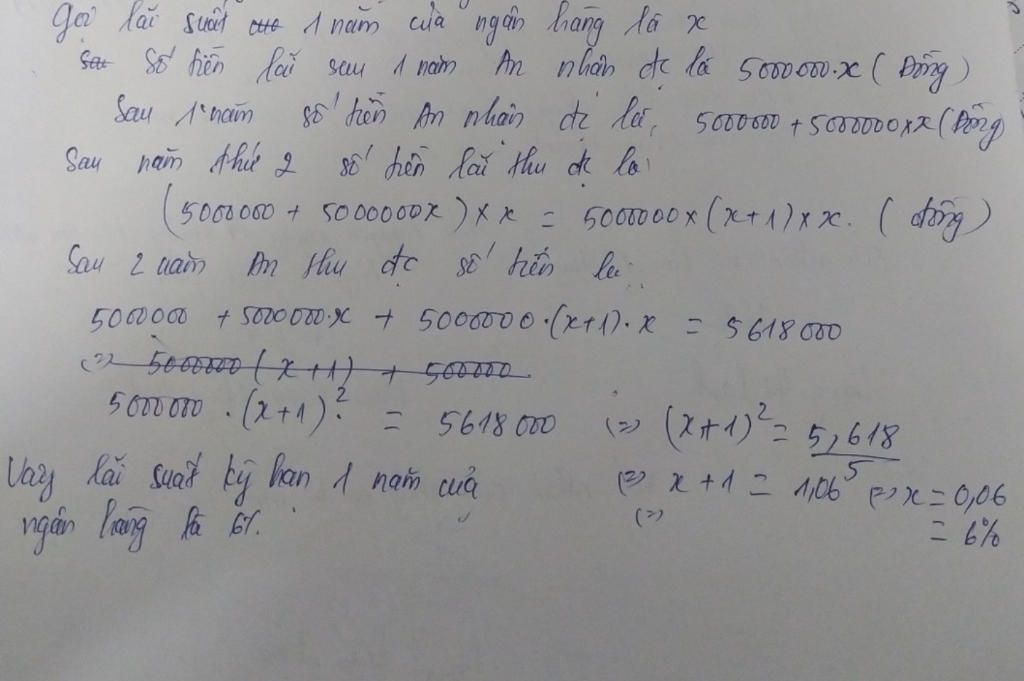 Gọi lãi suất 1 năm của ngân hàng là x
Số tiền lãi sau 1 năm An nhận đc là 5000000.x (Đồng)
Sau 1 năm số tiền An nhận đc là, 5000000 + 5000000×x (Đồng)
Sau năm thứ 2 số tiền lãi thu đc là:
(5000000 + 5000000x) × x = 5000000×(x+1)×x. (đồng)
Sau 2 năm An thu đc số tiền là:
5000000 + 5000000.x + 5000000.(x+1).x = 5618000
(=) 5000000 (x+1) + 500000
5000000 . (x+1)². = 5618000 (=) (x+1)² = 5,618/5
(=) x+1 = 1,06 (=) x = 0,06
(=) = 6%
Vậy lãi suất kỳ hạn 1 năm của
ngân hàng là 6%.